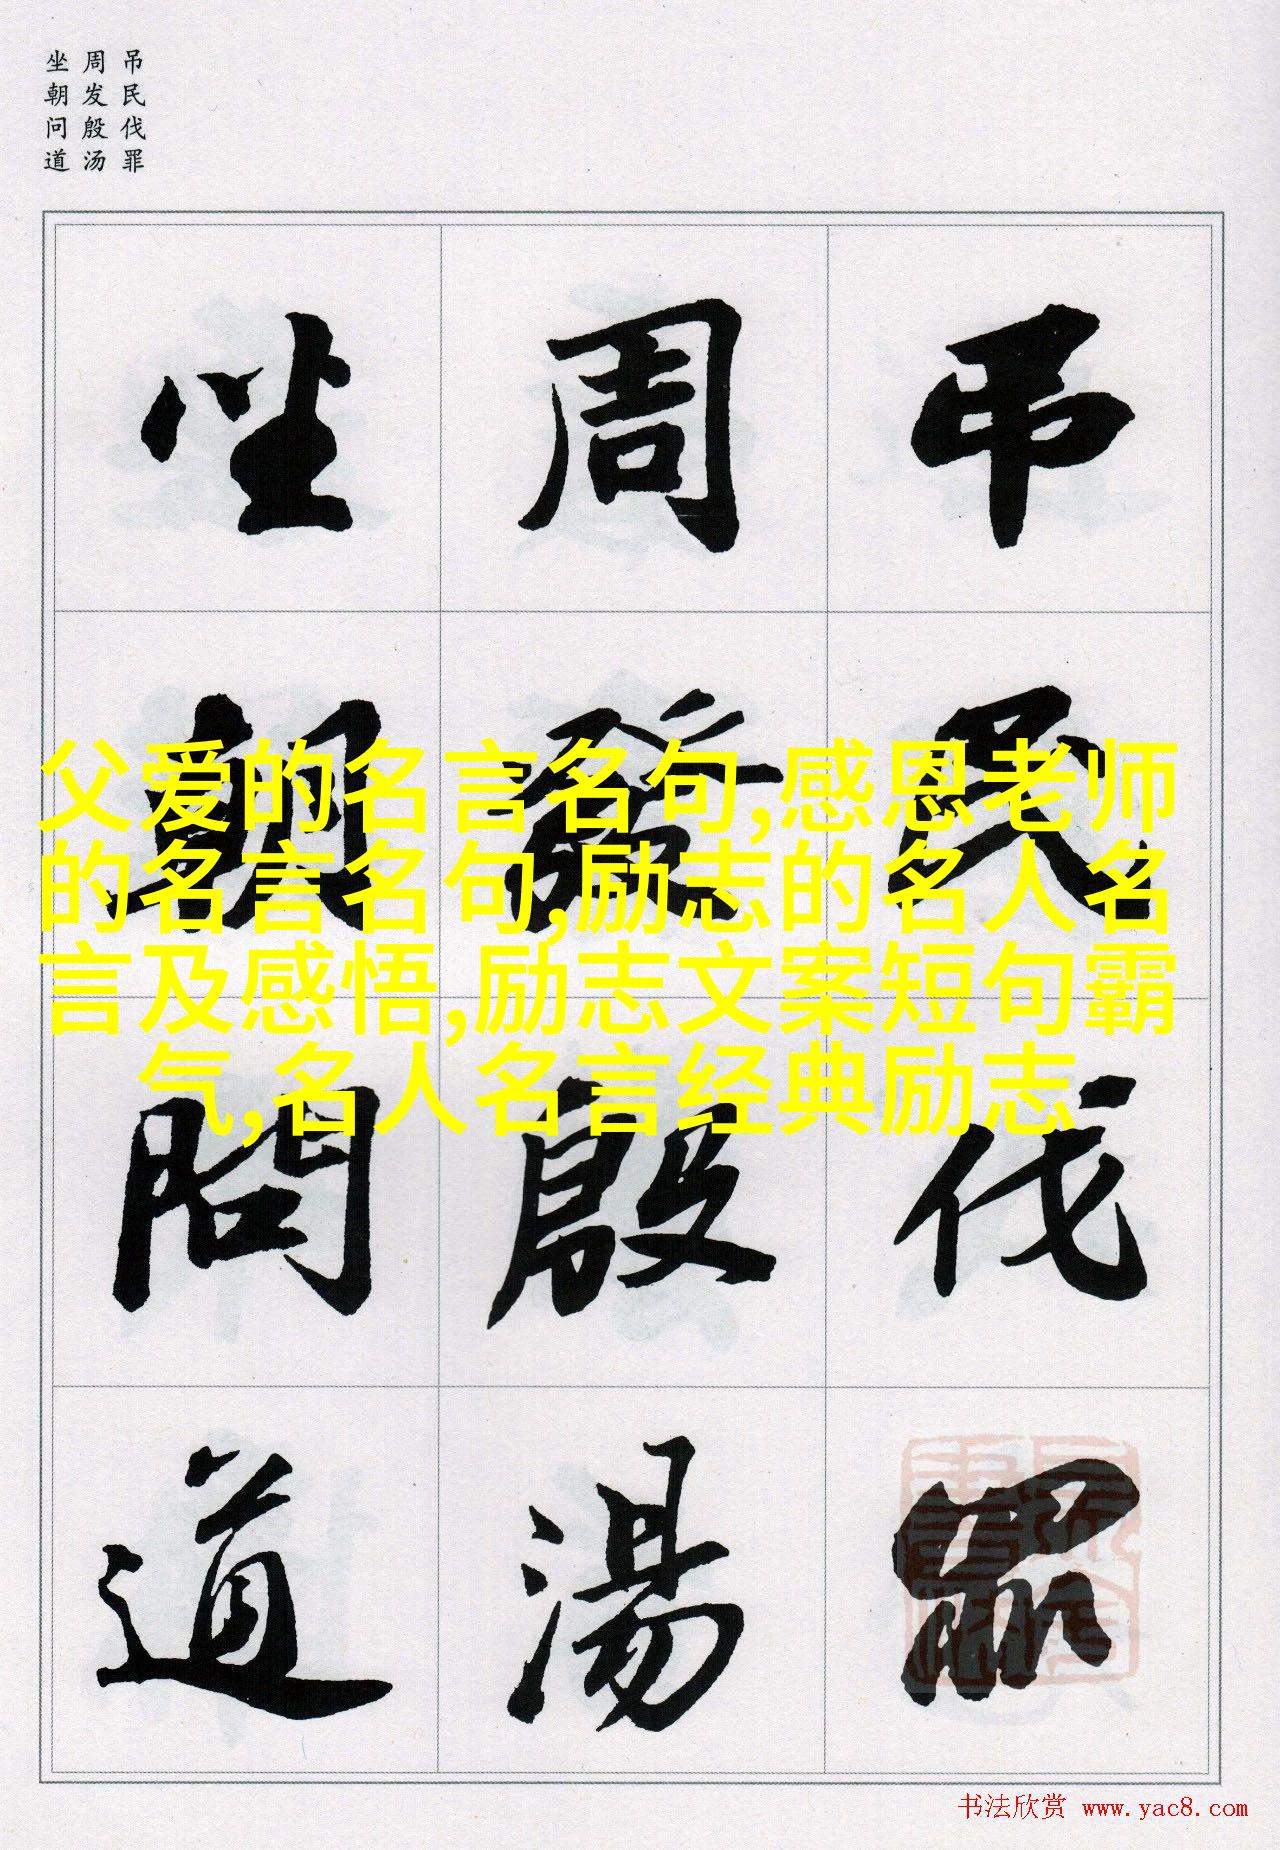 吊民伐罪
周发殷汤
坐朝问道
吊民伐罪
周發殷湯
坐朝問道
父爱的名言名句,感恩老师
的名言名句,励志的名人名
言及感悟,励志文案短句霸
气,名人名言经典励志
书法欣赏 www.yac8.com